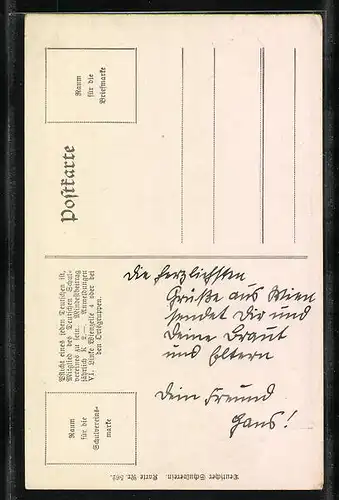 Raum
für die
Briefmarke
Postkarte
Pflicht eines jeden Deutschen ist,
Mitglied des Deutschen Schul-
vereines zu sein. Mindestbeitrag
jährlich K 2.—. Anmeldungen
VI., Linke Wienzeile 4 oder bei
den Ortsgruppen.
Raum
für die
Schulvereins-
marke
Deutscher Schulverein. Karte Nr. 562.
Die herzlichsten
Grüße aus Wien
sendet Dir und
Deine Braut
und Eltern
Dein Freund
Hans!